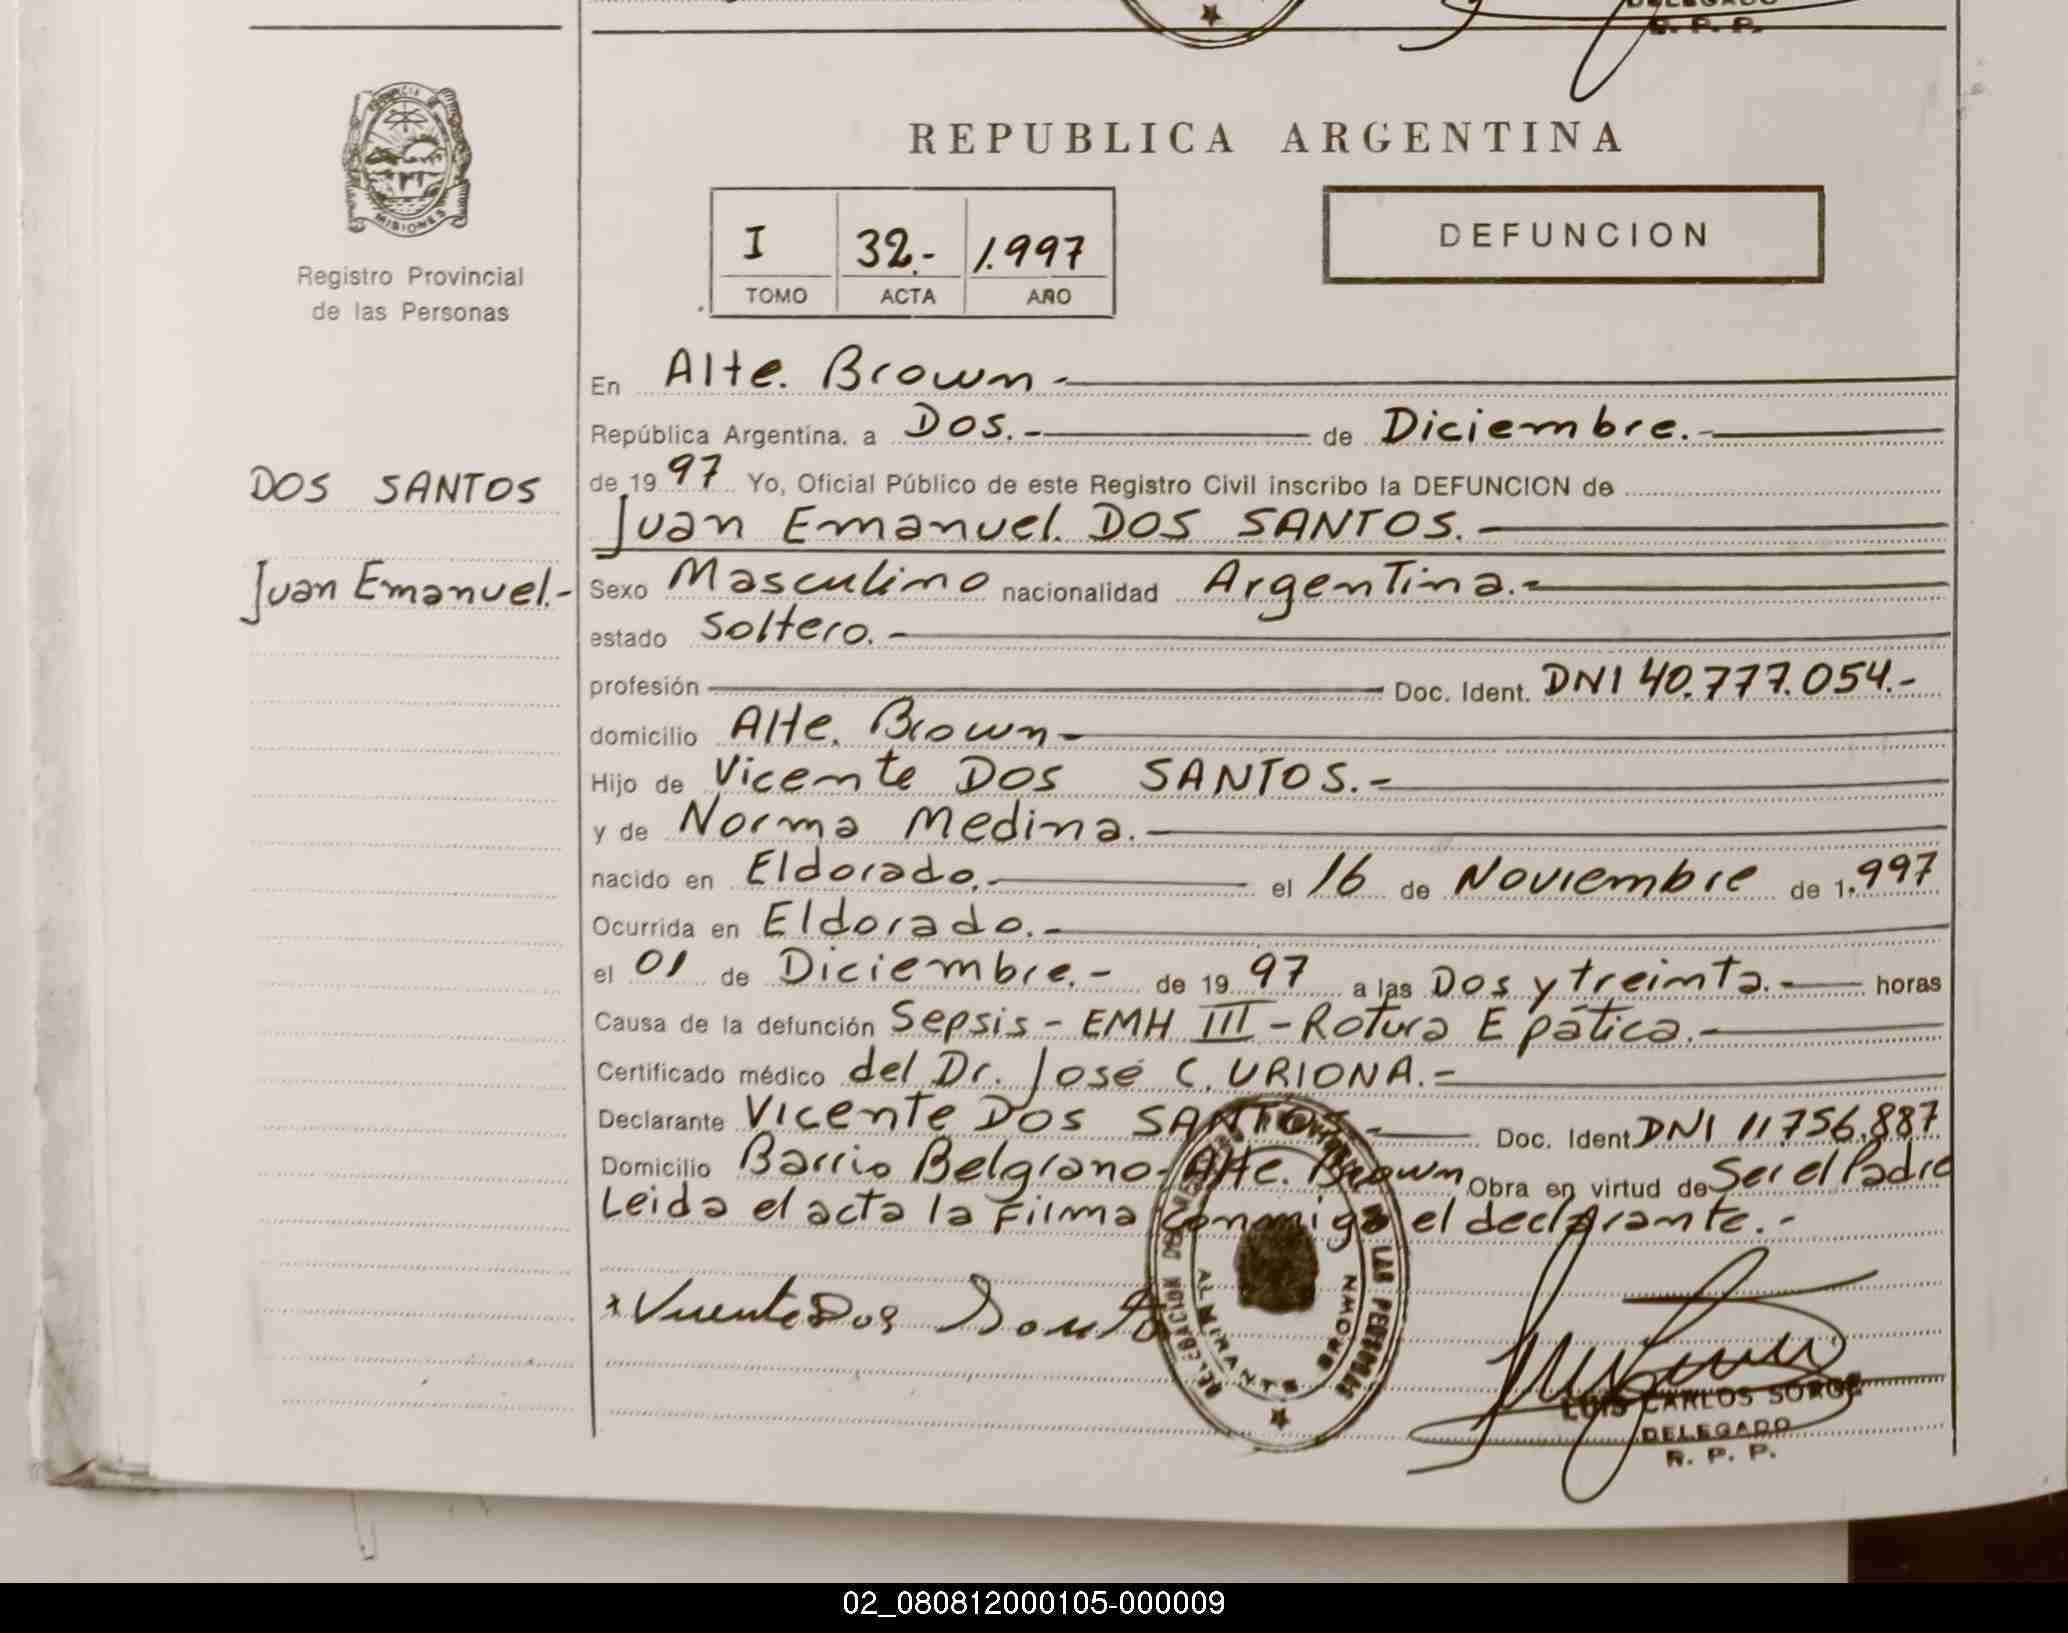 DELEGADO
R. P. P.
PROVINCIA DE
MISIONES
Registro Provincial
de las Personas
REPUBLICA ARGENTINA
I 32.- 1.997
TOMO ACTA AÑO
DEFUNCION
En Alte. Brown.-
República Argentina, a Dos.- de Diciembre.-
DOS SANTOS
Juan Emanuel.-
de 1997 Yo, Oficial Público de este Registro Civil inscribo la DEFUNCION de
Juan Emanuel DOS SANTOS.-
Sexo Masculino nacionalidad Argentina.-
estado Soltero.-
profesión Doc. Ident. DNI 40.777.054.-
domicilio Alte. Brown-
Hijo de Vicente DOS SANTOS.-
y de Norma Medina.-
nacido en Eldorado.- el 16 de Noviembre de 1.997
Ocurrida en Eldorado.-
el 01 de Diciembre.- de 1997 a las Dos y treinta.- horas
Causa de la defunción Sepsis - EMH III - Rotura Epática.-
Certificado médico del Dr. José C. URIONA.-
Declarante Vicente DOS SANTOS.- Doc. Ident. DNI 11.756.887
Domicilio Barrio Belgrano-Alte. Brown Obra en virtud de Ser el Padre
Leida el acta la Firma conmigo el declarante.-
Vicente Dos Santos
DELEGACION DE LAS PERSONAS
ALMIRANTE BROWN
LUIS CARLOS SORGE
DELEGADO
R. P. P.
02_080812000105-000009